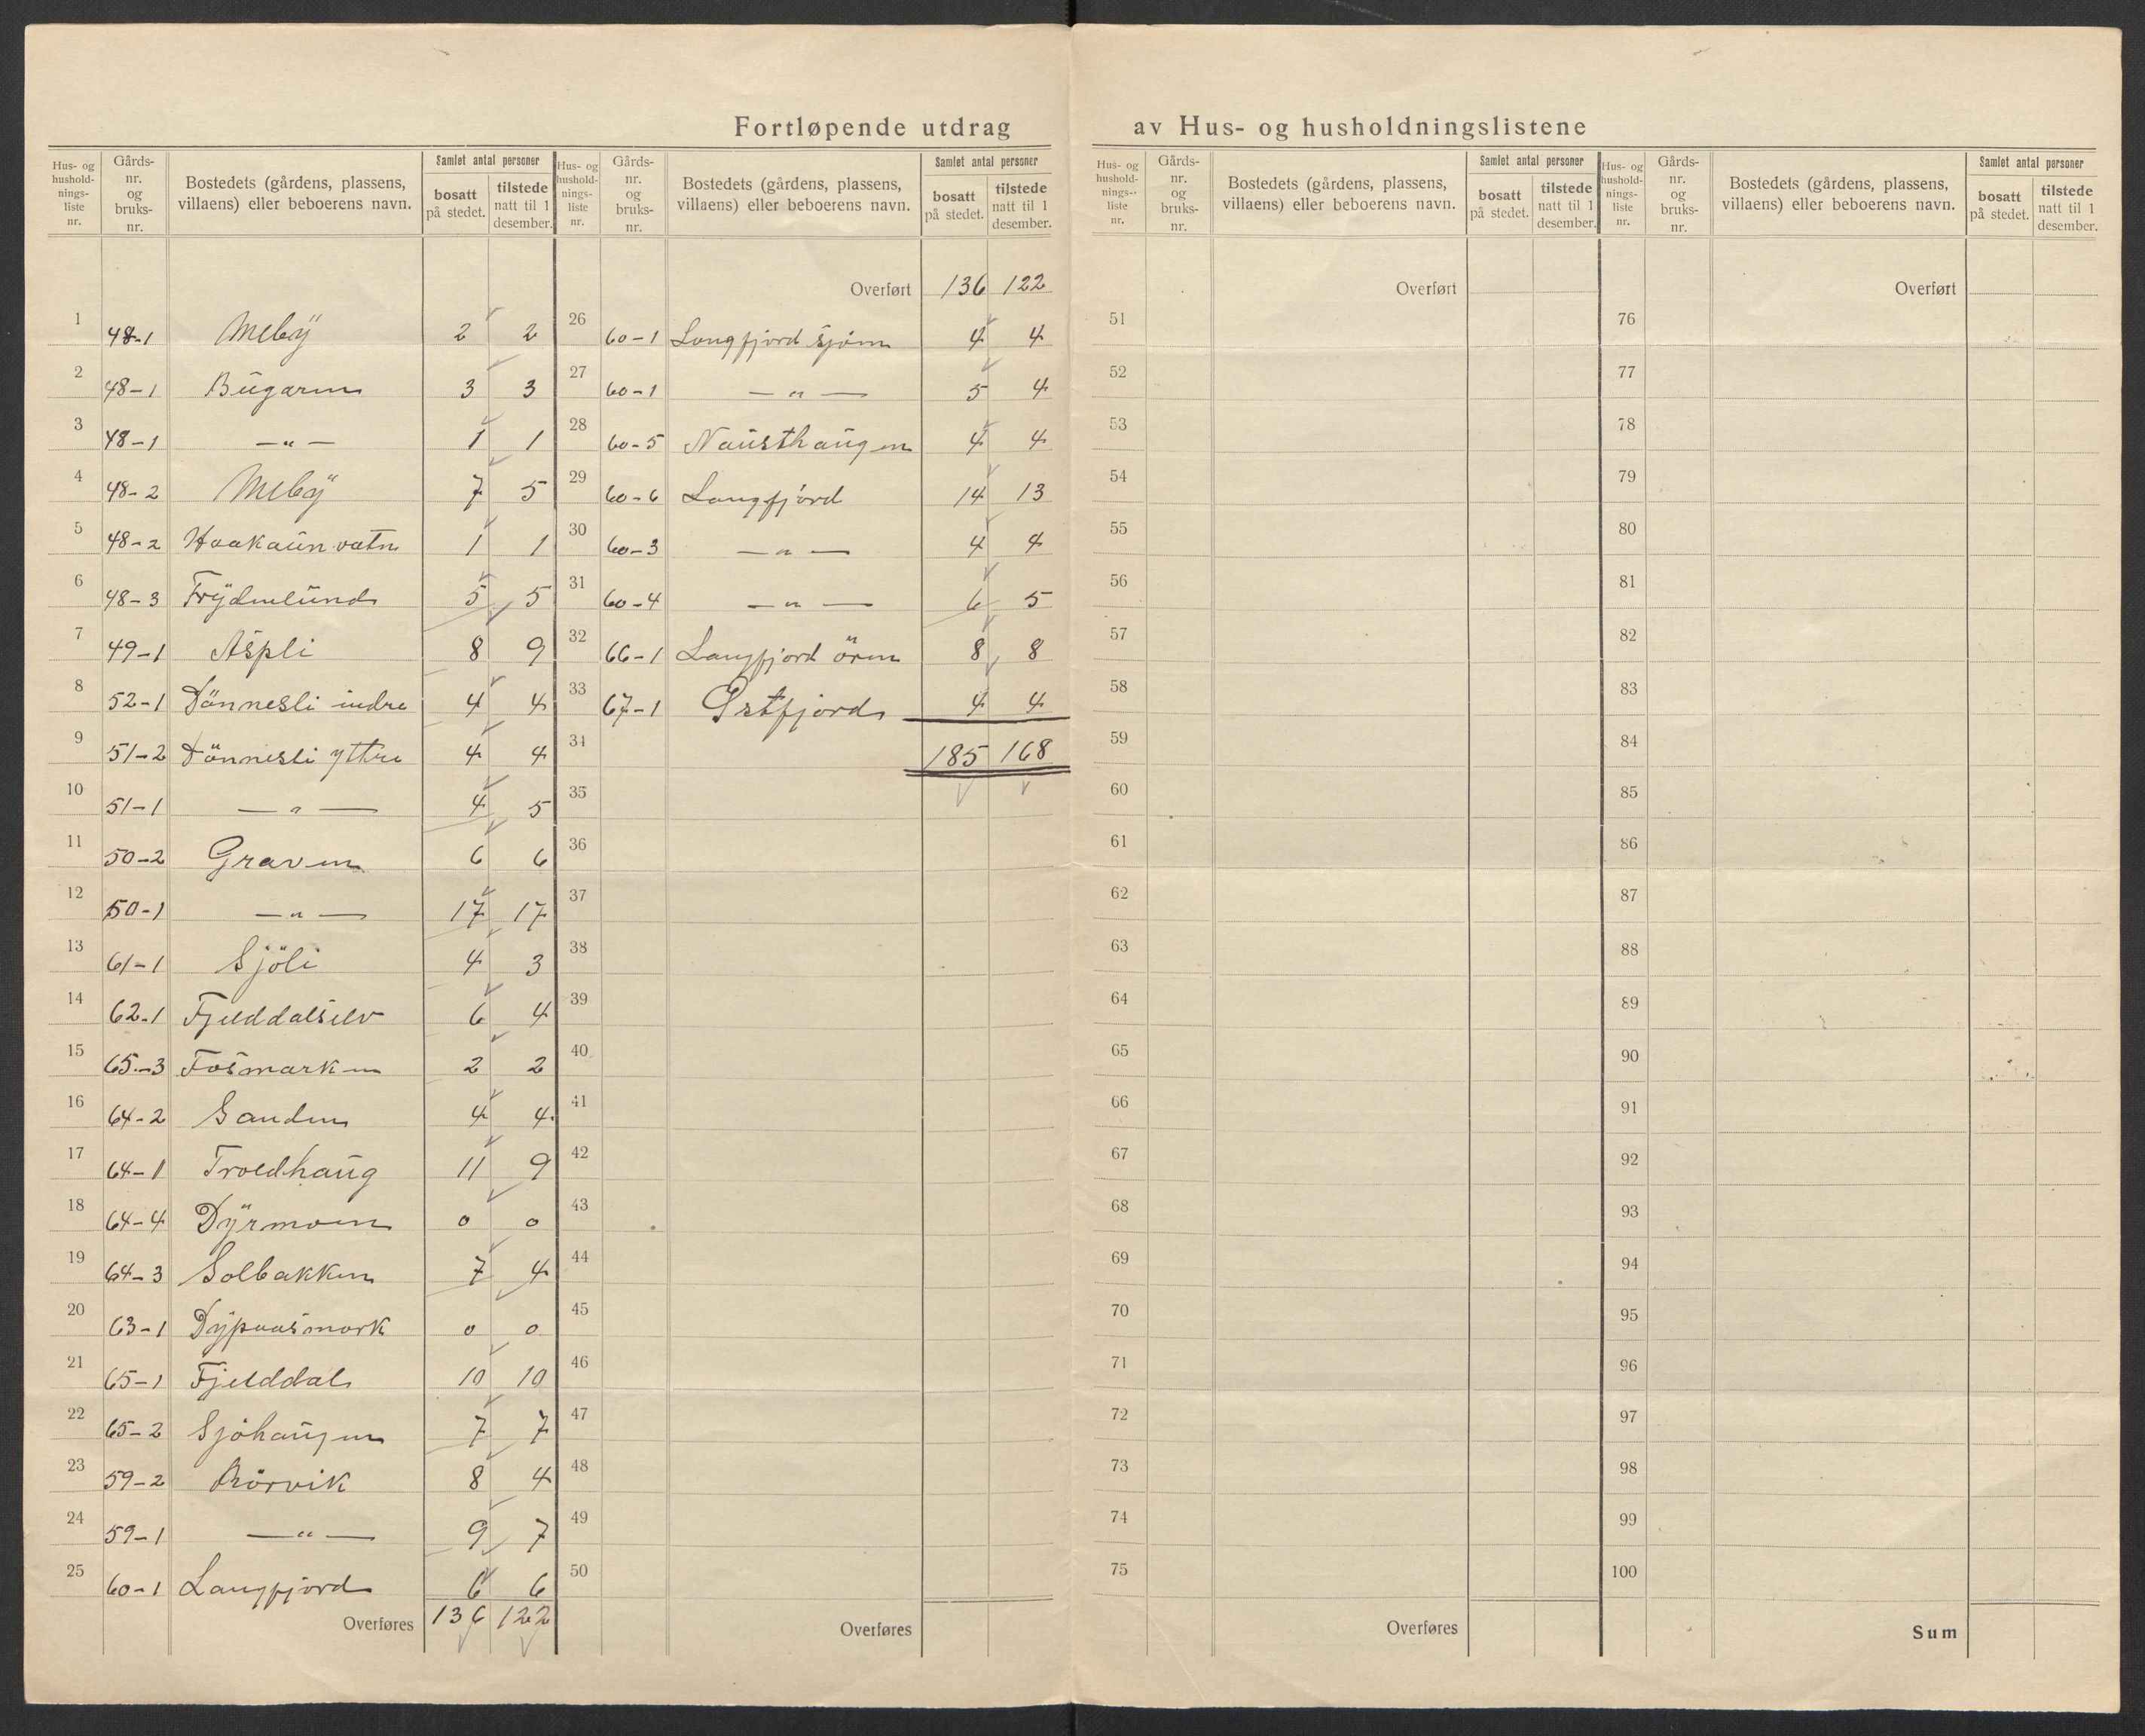 Fortløpende utdrag av Hus- og husholdningslistene
Hus- og husholdnings-liste nr. Gårds-nr. og bruks-nr. Bostedets (gårdens, plassens, villaens) eller beboerens navn. Samlet antal personer bosatt på stedet. tilstede natt til 1 desember.
1 48-1 Meby 2 2
2 48-1 Bugaren 3 3
3 48-1 —„— 1 1
4 48-2 Meby 7 5
5 48-2 Haakaunvatn 1 1
6 48-3 Frydenlund 5 5
7 49-1 Aspli 8 9
8 52-1 Dönnesli indre 4 4
9 51-2 Dönnesli yttre 4 4
10 51-1 —„— 4 5
11 50-2 Graven 6 6
12 50-1 —„— 17 17
13 61-1 Sjöli 4 3
14 62-1 Fjelddalselv 6 4
15 65-3 Fosmarken 2 2
16 64-2 Sanden 4 4
17 64-1 Troldhaug 11 9
18 64-4 Dyrmoen 0 0
19 64-3 Solbakken 7 4
20 63-1 Dypaasmark 0 0
21 65-1 Fjelddal 10 10
22 65-2 Sjöhaugen 7 7
23 59-2 Rörvik 8 4
24 59-1 —„— 9 7
25 60-1 Langfjord 6 6
Overføres 136 122
Hus- og husholdnings-liste nr. Gårds-nr. og bruks-nr. Bostedets (gårdens, plassens, villaens) eller beboerens navn. Samlet antal personer bosatt på stedet. tilstede natt til 1 desember.
Overført 136 122
26 60-1 Langfjord sjöen 4 4
27 60-1 —„— 5 4
28 60-5 Nausthaugen 4 4
29 60-6 Langfjord 14 13
30 60-3 —„— 4 4
31 60-4 —„— 6 5
32 66-1 Langfjord ören 8 8
33 67-1 Grtfjord 4 4
34 185 168
35
36
37
38
39
40
41
42
43
44
45
46
47
48
49
50
Overføres
Hus- og husholdnings-liste nr. Gårds-nr. og bruks-nr. Bostedets (gårdens, plassens, villaens) eller beboerens navn. Samlet antal personer bosatt på stedet. tilstede natt til 1 desember.
Overført
51
52
53
54
55
56
57
58
59
60
61
62
63
64
65
66
67
68
69
70
71
72
73
74
75
Overføres
Hus- og husholdnings-liste nr. Gårds-nr. og bruks-nr. Bostedets (gårdens, plassens, villaens) eller beboerens navn. Samlet antal personer bosatt på stedet. tilstede natt til 1 desember.
Overført
76
77
78
79
80
81
82
83
84
85
86
87
88
89
90
91
92
93
94
95
96
97
98
99
100
Sum